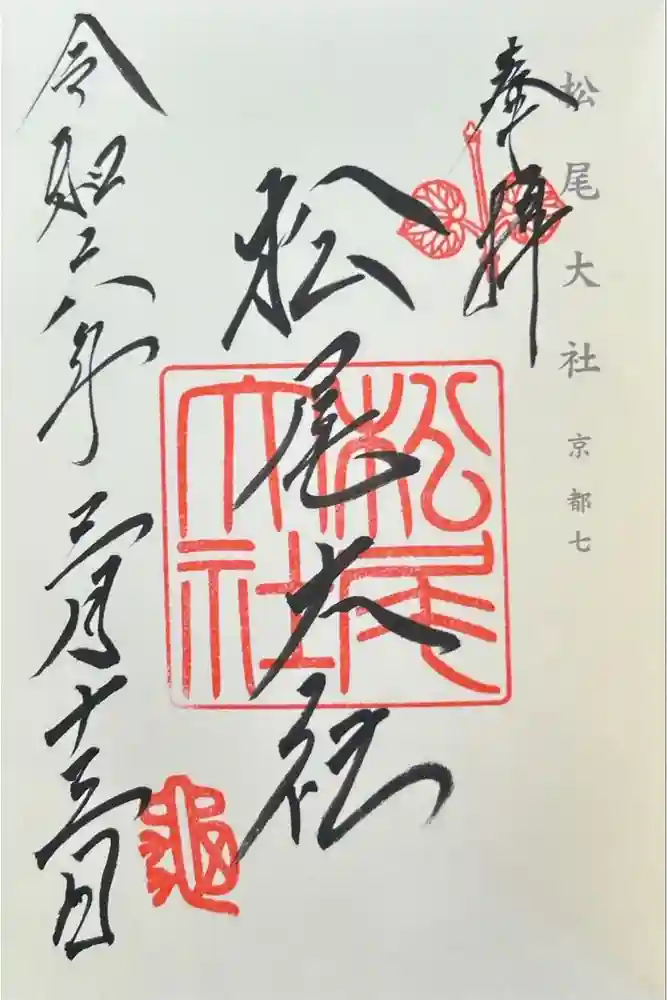 松尾大社 京都七
奉拝
松尾大社
松尾大社
令和六年 三月十三日
亀